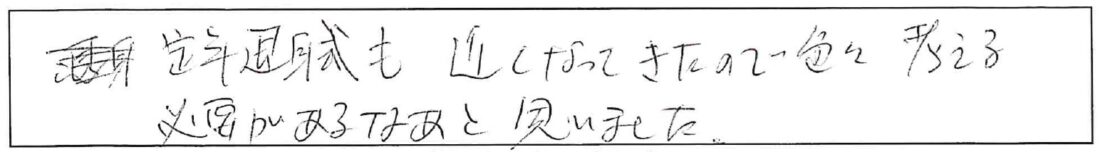 定年退職も 近くなってきたので色々 考える
必要があるなあと 思いました。